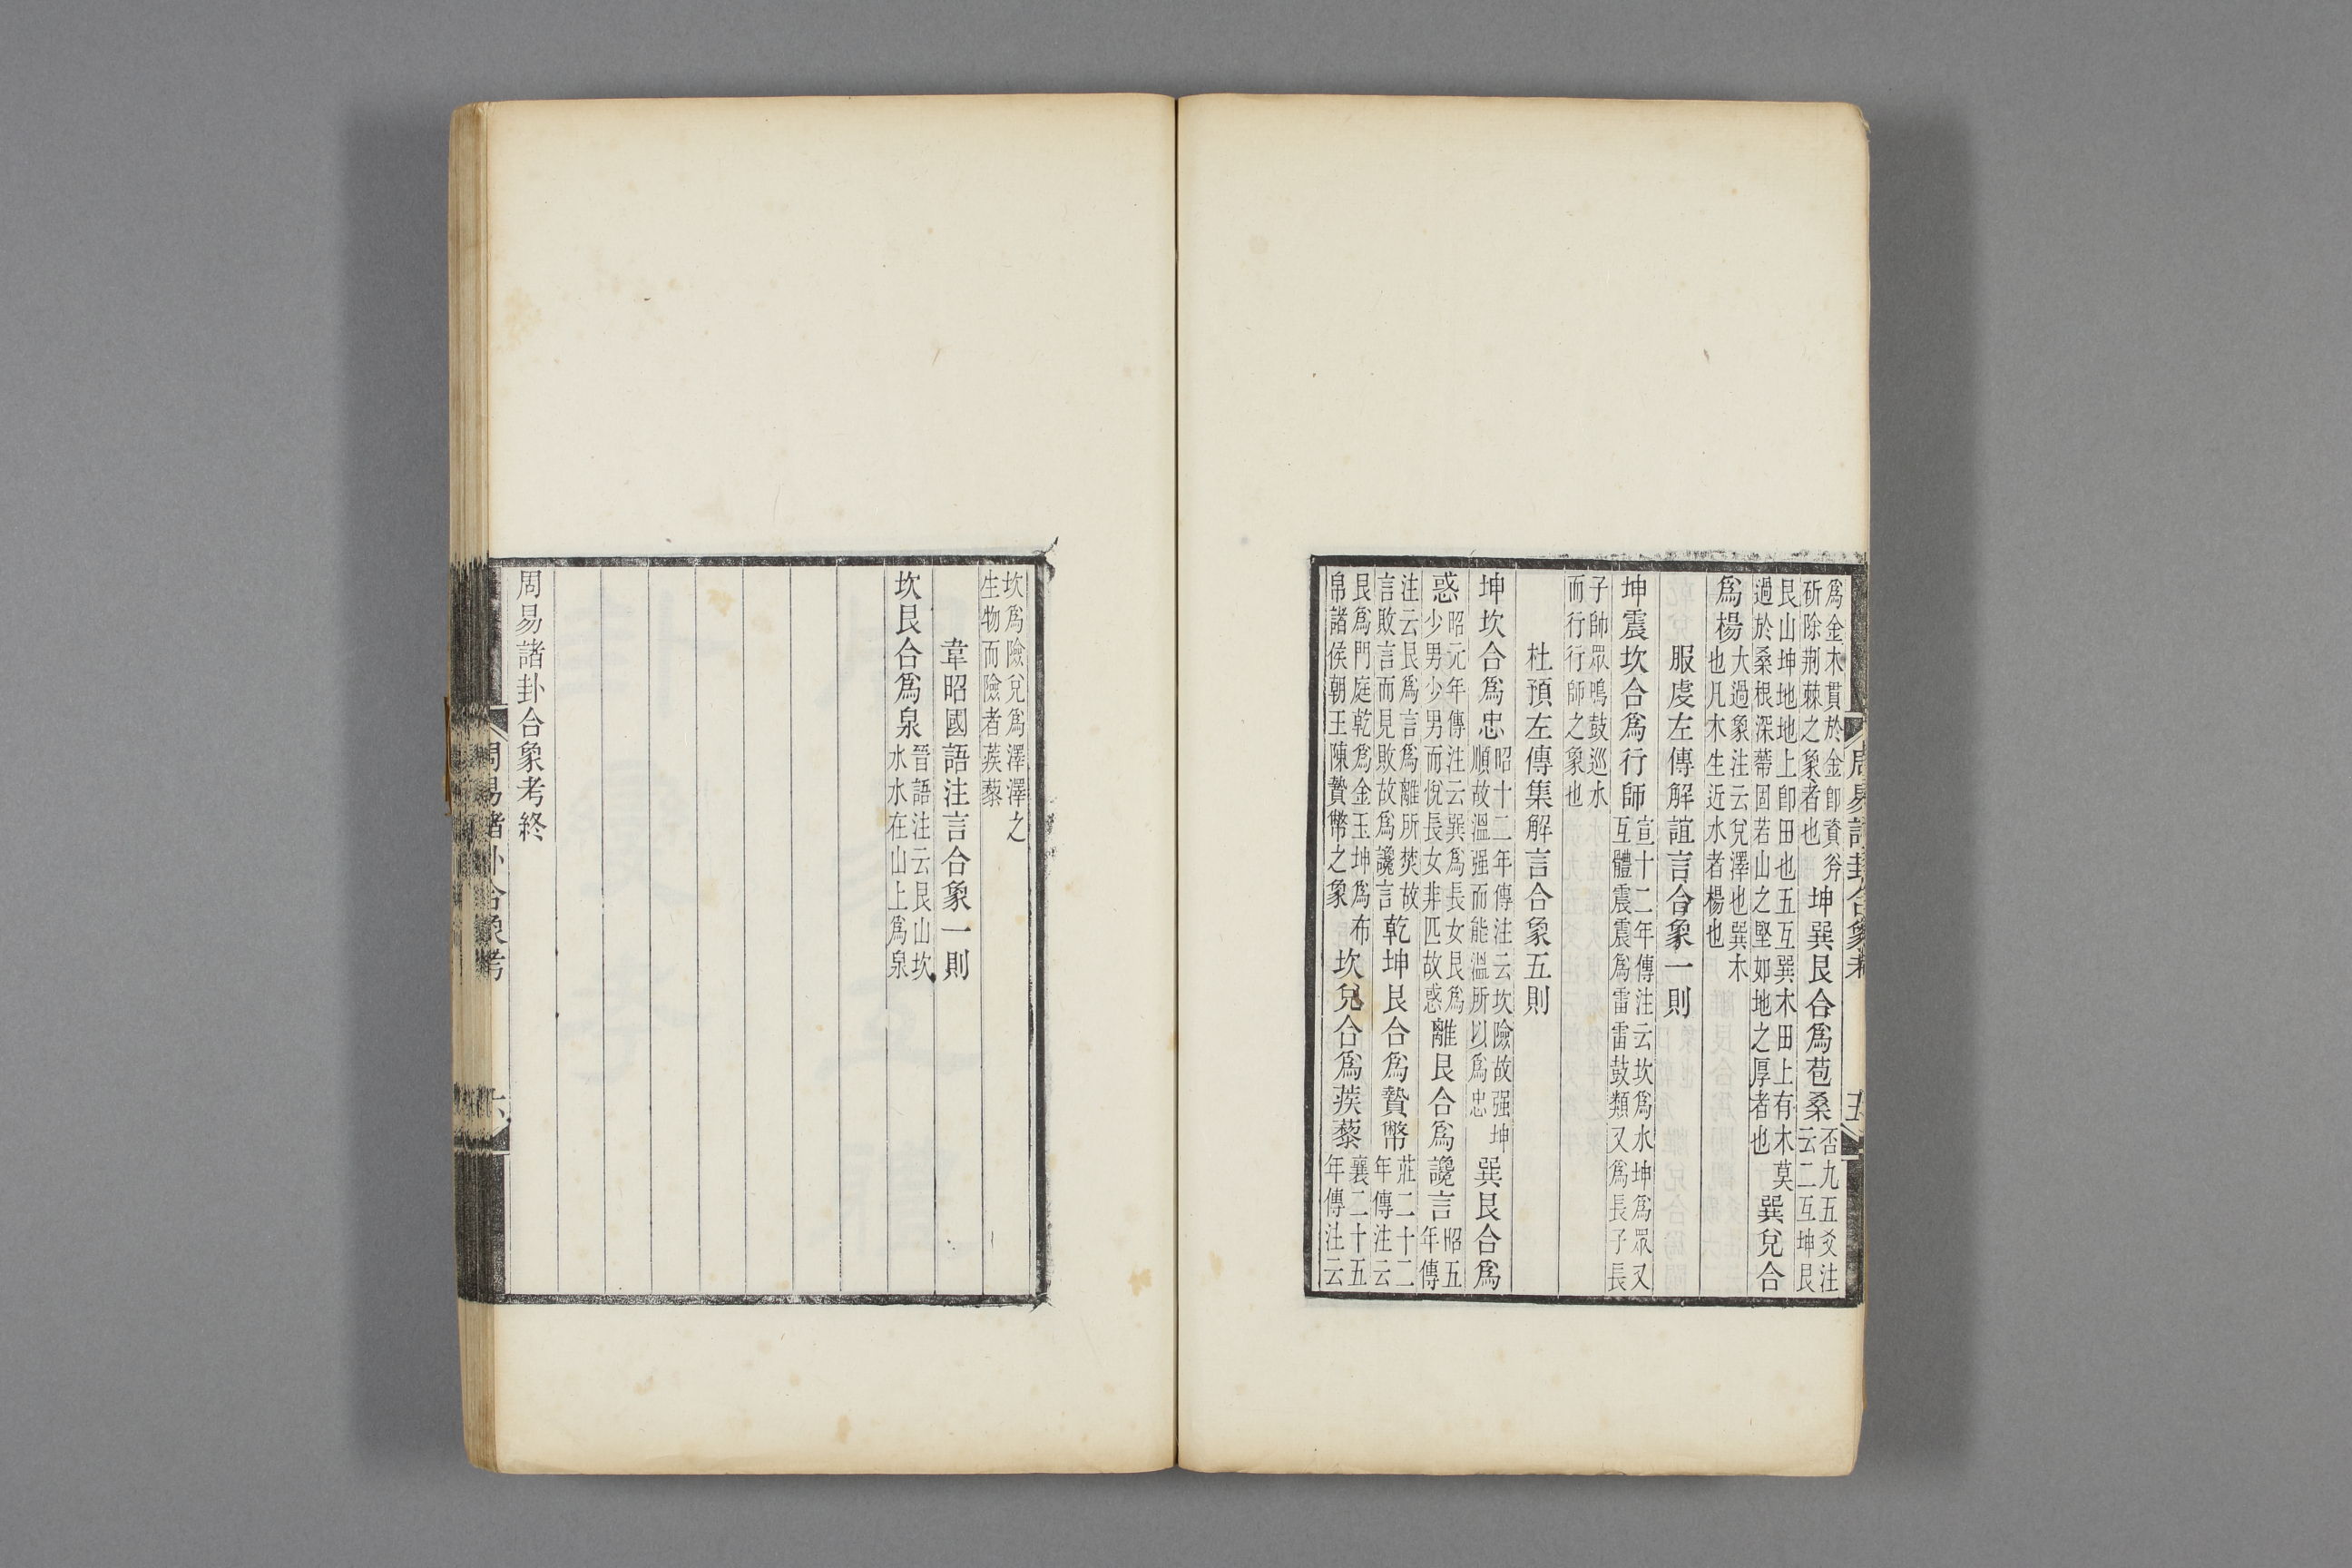 爲金木貫於金卽資斧
斫除荆棘之象者也
坤巽艮合爲苞桑
否九五爻注
云二互坤艮
艮山坤地地上卽田也五互巽木田上有木莫
過於桑根深蔕固若山之堅如地之厚者也
巽兌合
爲楊
大過象注云兌澤也巽木
也凡木生近水者楊也
服虔左傳解誼言合象一則
坤震坎合爲行師
宣十二年傳注云坎爲水坤爲眾又
互體震震爲雷雷鼓類又爲長子長
子帥眾鳴鼓巡水
而行行師之象也
杜預左傳集解言合象五則
坤坎合爲忠
昭十二年傳注云坎險故强坤
順故溫强而能溫所以爲忠
巽艮合爲
惑
昭元年傳注云巽爲長女艮爲
少男少男而悅長女非匹故惑
離艮合爲讒言
昭五
年傳
注云艮爲言爲離所焚故
言敗言而見敗故爲讒言
乾坤艮合爲贄幣
莊二十二
年傳注云
艮爲門庭乾爲金玉坤爲布
帛諸侯朝王陳贄幣之象
坎兌合爲蒺藜
襄二十五
年傳注云
周易諸卦合象考
五
坎爲險兌爲澤澤之
生物而險者蒺藜
韋昭國語注言合象一則
坎艮合爲泉
晉語注云艮山坎
水水在山上爲泉
周易諸卦合象考終
周易諸卦合象考
六